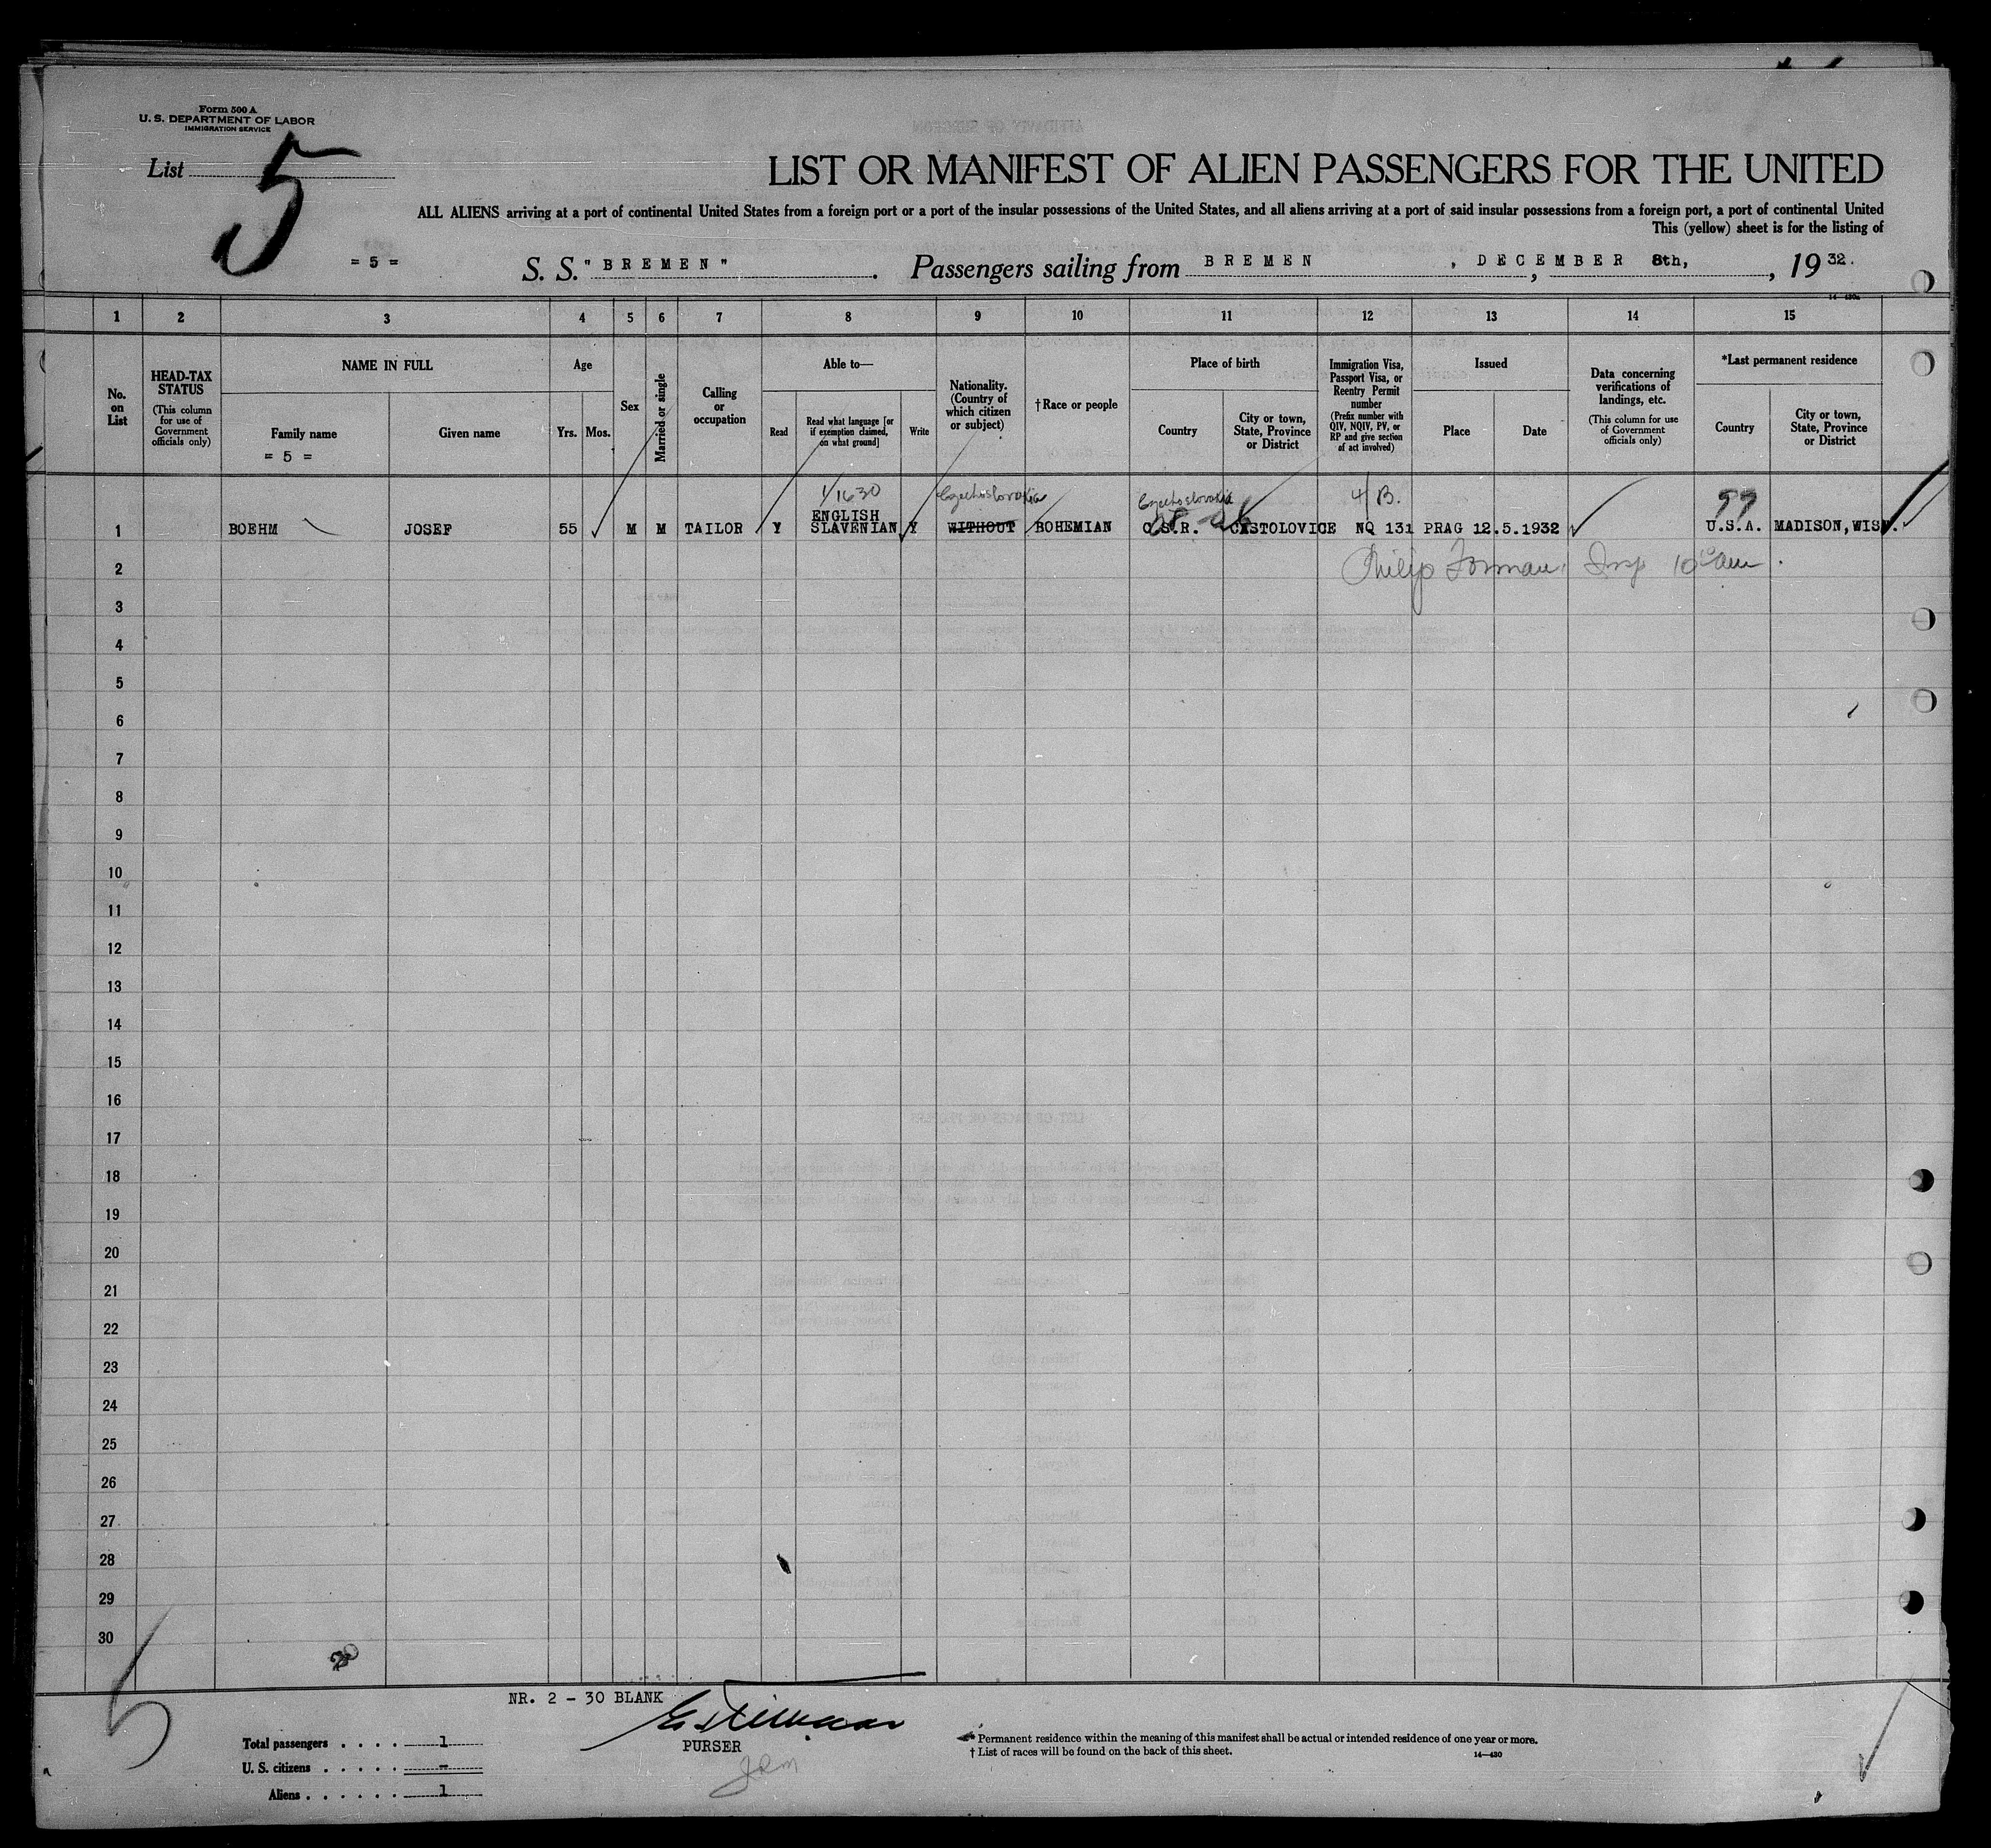 Form 500 A
U. S. DEPARTMENT OF LABOR
IMMIGRATION SERVICE
List 5
LIST OR MANIFEST OF ALIEN PASSENGERS FOR THE UNITED
ALL ALIENS arriving at a port of continental United States from a foreign port or a port of the insular possessions of the United States, and all aliens arriving at a port of said insular possessions from a foreign port, a port of continental United
This (yellow) sheet is for the listing of
= 5 = S. S. "BREMEN". Passengers sailing from BREMEN, DECEMBER 8th, , 1932.
1 2 3 4 5 6 7 8 9 10 11 12 13 14 15
No. on List
HEAD-TAX STATUS
(This column for use of Government officials only)
NAME IN FULL
Family name
= 5 =
Given name
Age
Yrs. Mos.
Sex
Married or single
Calling or occupation
Able to—
Read
Read what language [or if exemption claimed, on what ground]
Write
Nationality. (Country of which citizen or subject)
†Race or people
Place of birth
Country
City or town, State, Province or District
Immigration Visa, Passport Visa, or Reentry Permit number
(Prefix number with QIV, NQIV, PV, or RP and give section of act involved)
Issued
Place
Date
Data concerning verifications of landings, etc.
(This column for use of Government officials only)
*Last permanent residence
Country
City or town, State, Province or District
1/1630 Czechoslovakia Czechoslovakia 4/B. 99
ENGLISH
1 BOEHM JOSEF 55 M M TAILOR Y SLAVENIAN Y WITHOUT BOHEMIAN C.S.R. CASTOLOVICE NQ 131 PRAG 12.5.1932 U.S.A. MADISON, WISN.
2 Philip Forman Insp 10 am
3
4
5
6
7
8
9
10
11
12
13
14
15
16
17
18
19
20
21
22
23
24
25
26
27
28
29
30
NR. 2 - 30 BLANK
PURSER
Total passengers . . . . 1
U. S. citizens . . . . . -
Aliens . . . . . . 1
* Permanent residence within the meaning of this manifest shall be actual or intended residence of one year or more.
† List of races will be found on the back of this sheet.
14—430